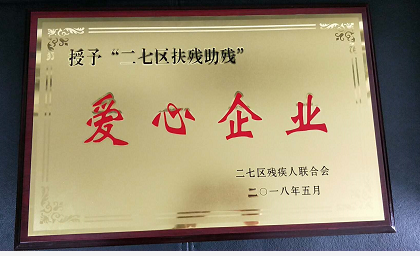 授予“二七区扶残助残”
爱心企业
二七区残疾人联合会
二〇一八年五月